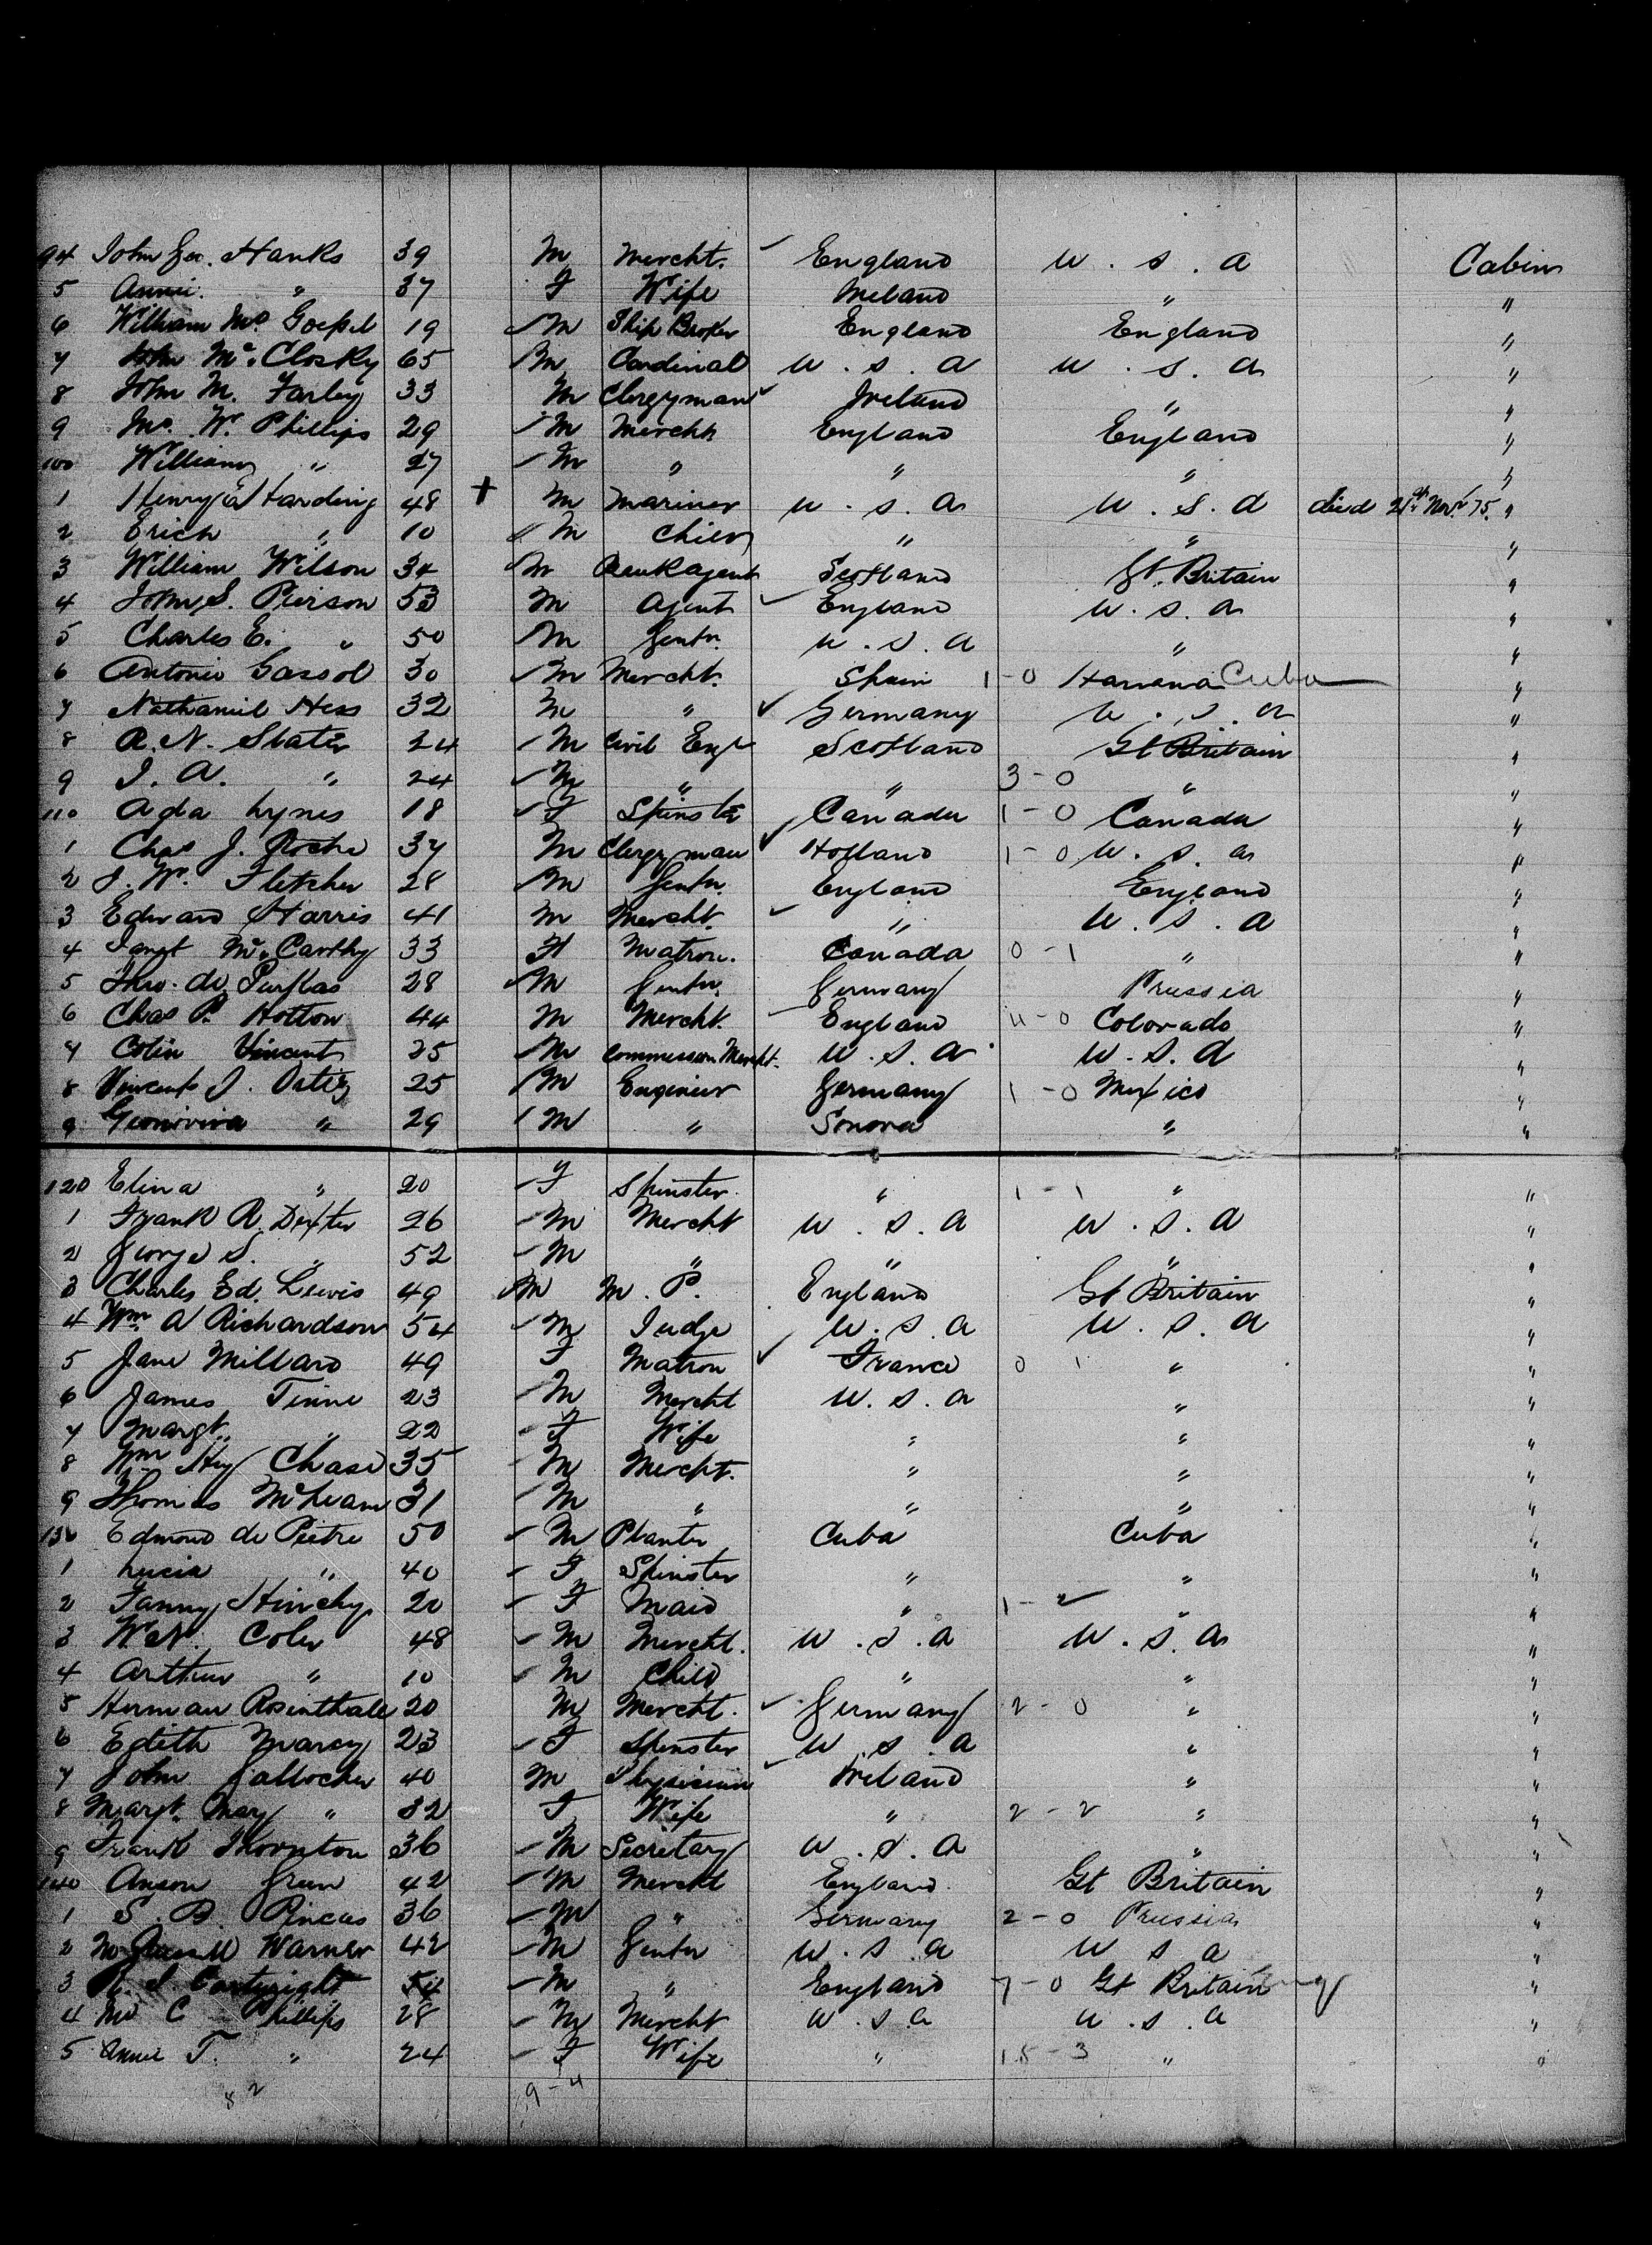 94 John Geo. Hanks 39 M Mercht. ✓ England U.S.A Cabin
5 Annie " 37 F Wife Ireland " "
6 William Goepel 19 ✓ M Ship Broker England England "
7 John McClosky 65 ✓ M Cardinal U.S.A U.S.A "
8 John M. Farley 33 M Clergyman ✓ Ireland " "
9 W. Phillips 29 ✓ M Mercht England England "
100 William " 27 ✓ M " " " "
1 Henry Harding 48 + M Mariner U.S.A U.S.A died 21st Novr 75. "
2 Erich " 10 ✓ M Child " " "
3 William Wilson 34 M Bank agent Scotland Gt. Britain "
4 John S. Pierson 53 M Agent ✓ England U.S.A "
5 Charles E. " 50 ✓ M Gentn. U.S.A " "
6 Antonio Gassol 30 ✓ M Mercht. Spain 1-0 Havana Cuba "
7 Nathaniel Hess 32 M " ✓ Germany U.S.A "
8 A. N. Slater 24 ✓ M Civil Engr Scotland Gt Britain "
9 J. A. " 24 ✓ M " " 3-0 " "
110 Ada Lynes 18 ✓ F Spinster Canada 1-0 Canada "
1 Chas J. Roche 37 M Clergyman ✓ Holland 1-0 U.S.A "
2 J. W. Fletcher 28 ✓ M Gentn. England England "
3 Edward Harris 41 M Mercht. ✓ " U.S.A "
4 McCarthy 33 F Matron. Canada 0-1 " "
5 Theo. de 28 ✓ M Gentn. Germany Prussia "
6 Chas P. Hotton 44 M Mercht. England 4-0 Colorado "
7 Colin Vincent 25 ✓ M Commission Mercht. U.S.A U.S.A "
8 Vincent J. Ortiz 25 ✓ M Engineer Germany 1-0 Mexico "
9 " 29 ✓ M " Sonora " "
120 Elina " 20 ✓ F Spinster. " 1-1 " "
1 Frank R. Dexter 26 ✓ M Mercht U.S.A U.S.A "
2 George S. " 52 ✓ M " " " "
3 Charles Ed. Lewis 49 ✓ M M.P. England Gt Britain "
4 Wm. A Richardson 54 ✓ M Judge U.S.A U.S.A "
5 Jane Millard 49 F Matron ✓ France 0 1 " "
6 James Tinne 23 ✓ M Mercht U.S.A " "
7 Margt. " 22 ✓ F Wife " " "
8 Wm Hy Chase 35 ✓ M Mercht. " " "
9 Thomas McLean 31 ✓ M " " " "
130 Edmond de Pietre 50 ✓ M Planter Cuba Cuba "
1 Lucia " 40 ✓ F Spinster " " "
2 Fanny Hinchy 20 ✓ F Maid " 1-2 " "
3 W. N. Coler 48 ✓ M Mercht. U.S.A U.S.A "
4 Arthur " 10 ✓ M Child " " "
5 Herman Rosinthale 20 M Mercht. ✓ Germany 2-0 " "
6 Edith Marcy 23 ✓ F Spinster U.S.A " "
7 John Gallocher 40 M Physician ✓ Ireland " "
8 Margt. May " 32 F Wife " 2-2 " "
9 Frank Thornton 36 ✓ M Secretary U.S.A " "
140 Anson Green 42 ✓ M Mercht England Gt Britain "
1 S. B. Pincus 36 ✓ M " Germany 2-0 Prussia "
2 Warner 42 ✓ M Gentn U.S.A U S A "
3 Cartwright 54 ✓ M " England 7-0 Gt Britain "
4 C Phillips 28 ✓ M Mercht U.S.A U.S.A "
5 Annie T. " 24 ✓ F Wife " 15-3 " "
82 9-4